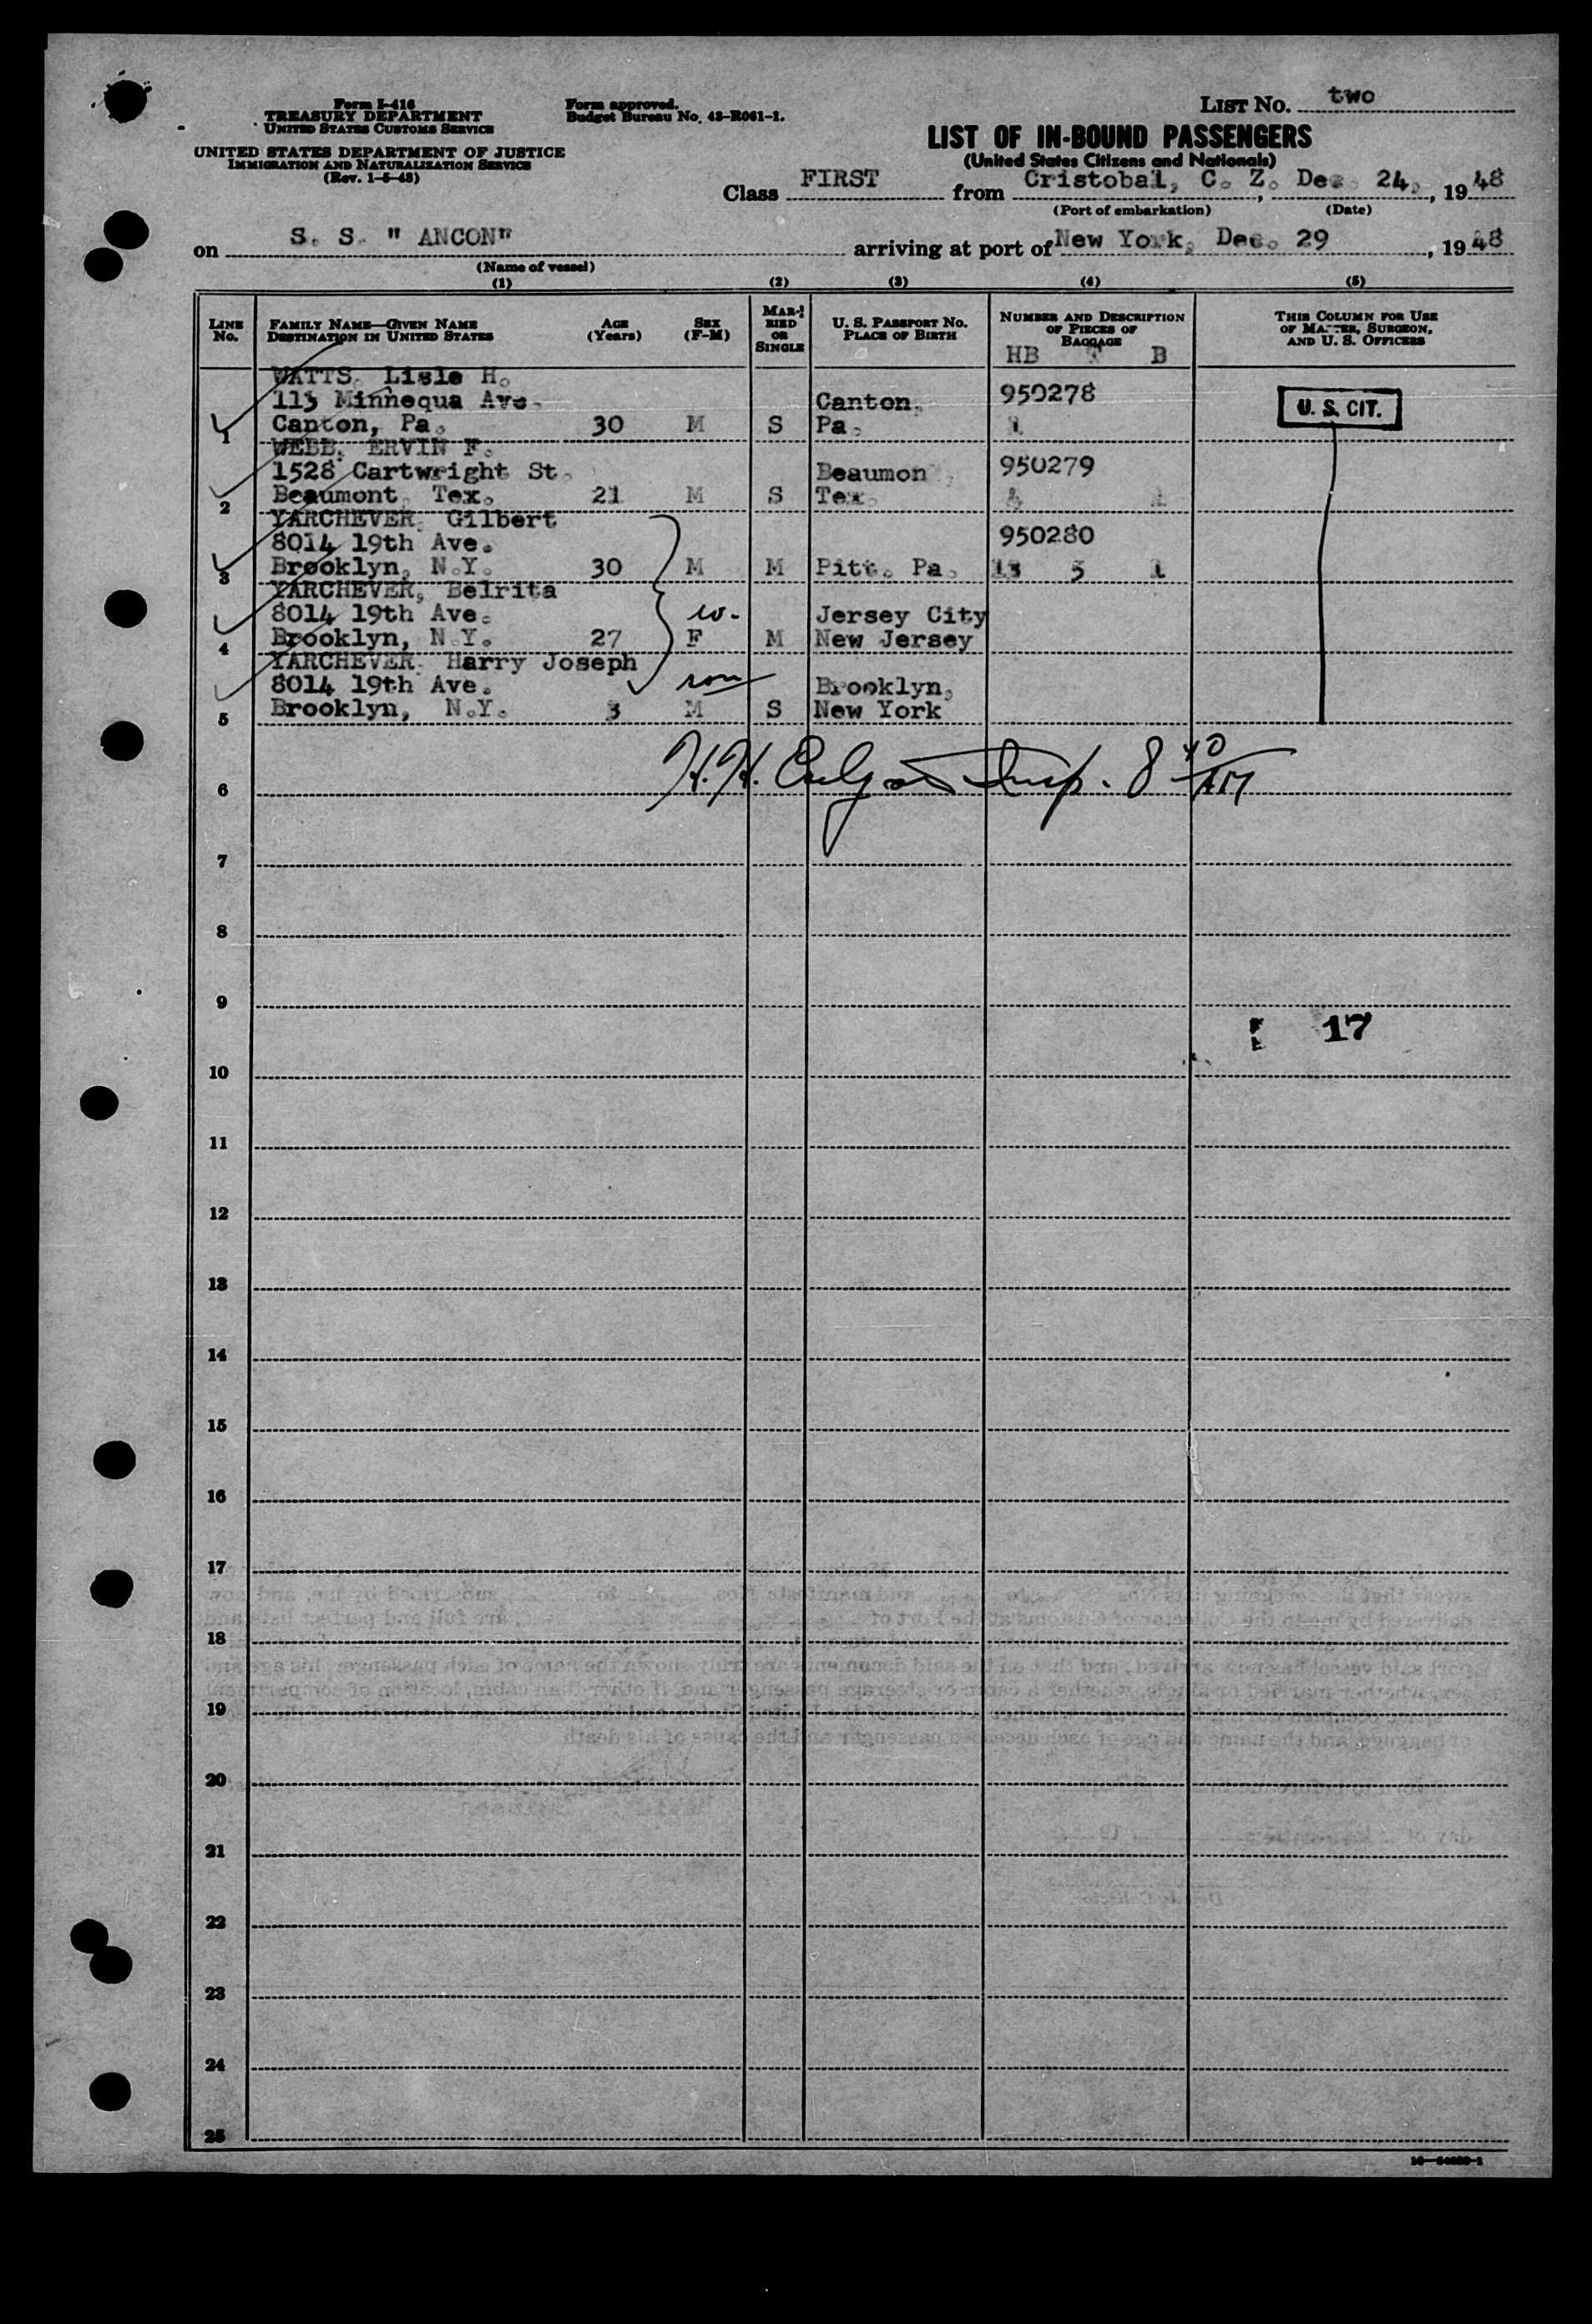 Form I-416
TREASURY DEPARTMENT
UNITED STATES CUSTOMS SERVICE
UNITED STATES DEPARTMENT OF JUSTICE
IMMIGRATION AND NATURALIZATION SERVICE
(Rev. 1-5-48)
Form approved.
Budget Bureau No. 43-R061-1.
LIST No. two
LIST OF IN-BOUND PASSENGERS
(United States Citizens and Nationals)
Class FIRST from Cristobal, C. Z. Dec. 24, 1948
(Port of embarkation) (Date)
on S. S. " ANCON" arriving at port of New York, Dec. 29, 1948
(Name of vessel)
(1) (2) (3) (4) (5)
LINE No. FAMILY NAME—GIVEN NAME DESTINATION IN UNITED STATES AGE (Years) SEX (F-M) MARRIED OR SINGLE U. S. PASSPORT No. PLACE OF BIRTH NUMBER AND DESCRIPTION OF PIECES OF BAGGAGE THIS COLUMN FOR USE OF MASTER, SURGEON, AND U. S. OFFICERS
HB T B
WATTS, Lisle H.
113 Minnequa Ave. Canton, 950278
1 Canton, Pa. 30 M S Pa. 1
U. S. CIT.
WEBB, ERVIN F.
1528 Cartwright St. Beaumon 950279
2 Beaumont, Tex. 21 M S Tex. 4 1
YARCHEVER, Gilbert
8014 19th Ave. 950280
3 Brooklyn, N.Y. 30 M M Pitt. Pa. 13 5 1
YARCHEVER, Belrita
8014 19th Ave. w. Jersey City
4 Brooklyn, N.Y. 27 F M New Jersey
YARCHEVER, Harry Joseph
8014 19th Ave. son Brooklyn,
5 Brooklyn, N.Y. 3 M S New York
H.H. Insp. 8 40 AM
6
7
8
9
17
10
11
12
13
14
15
16
17
18
19
20
21
22
23
24
25